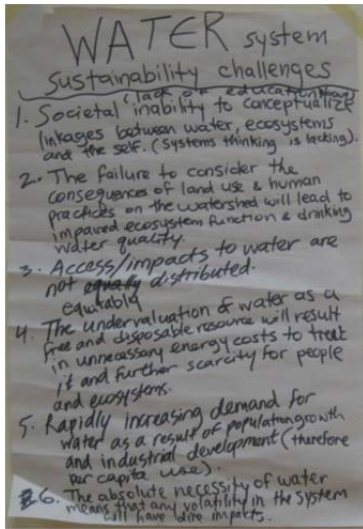 WATER system
sustainability challenges
(lack of education
1. Societal inability to conceptualize
linkages between water, ecosystems
and the self. (systems thinking is lacking).
2. The failure to consider the
consequences of land use & human
practices on the watershed will lead to
impaired ecosystem function & drinking
water quality.
3. Access/impacts to water are
not equally distributed.
equitably
4. The undervaluation of water as a
free and disposable resource will result
in unnecessary energy costs to treat
it and further scarcity for people
and ecosystems.
5. Rapidly increasing demand for
water as a result of population growth
and industrial development (therefore
per capita use).
6. The absolute necessity of water
means that any volatility in the system
will have dire impacts.